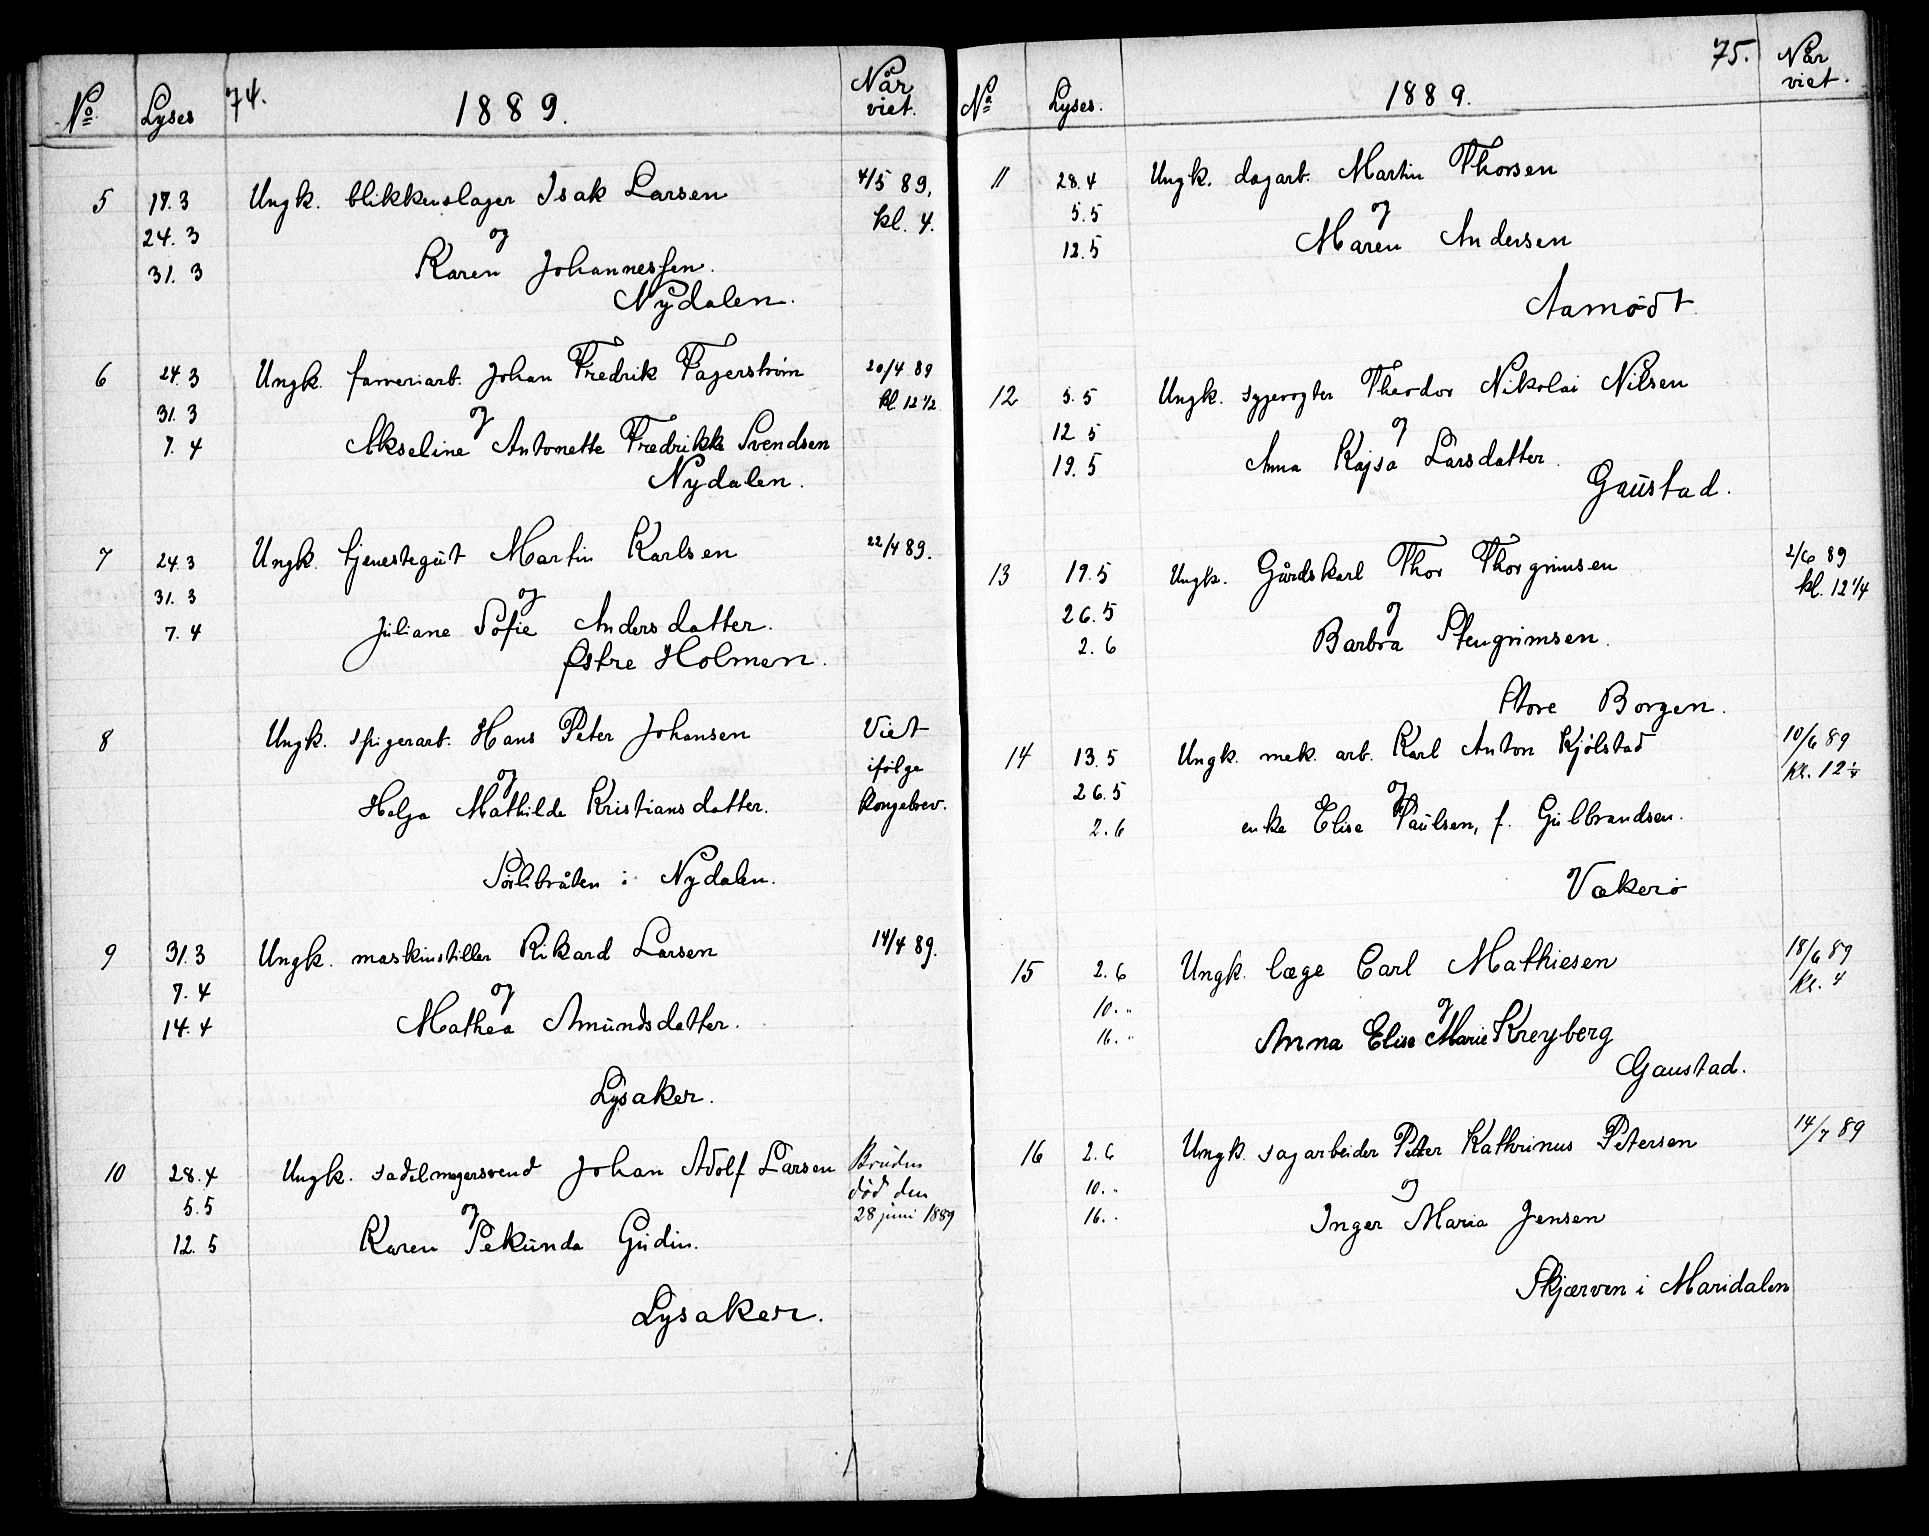 74.
No. Lyses 1889. Når viet.
5 17.3 Ungk. blikkenslager Isak Larsen 4/5 89,
24.3 og kl. 4.
31.3 Karen Johannessen.
Nydalen.
6 24.3 Ungk. farveriarb. Johan Fredrik Fagerstrøm 20/4 89
31.3 og kl. 12 1/2
7.4 Akseline Antonette Fredrikke Svendsen
Nydalen.
7 24.3 Ungk. tjenestegut Martin Karlsen 22/4 89.
31.3 og
7.4 Juliane Sofie Andersdatter.
Østre Holmen.
8 Ungk. spigerarb. Hans Peter Johansen Viet
og ifølge
Helga Mathilde Kristiansdatter. Kongebrev.
i Nydalen.
9 31.3 Ungk. maskinstiller Rikard Larsen 14/4 89.
7.4 og
14.4 Mathea Amundsdatter.
Lysaker.
10 28.4 Ungk. sadelmagersvend Johan Adolf Larsen Bruden
5.5 og død den
12.5 Karen Gudin. 28 juni 1889
Lysaker.
75.
No. Lyses. 1889. Når viet.
11 28.4 Ungk. dagarb. Martin Thorsen
5.5 og
12.5 Maren Andersen
Aamodt
12 5.5 Ungk. sygevogter Theodor Nikolai Nilsen
12 5 og
19.5 Anna Kajsa Larsdatter.
Gaustad.
13 19.5 Ungk. Gårdskarl Thor Thorgrimsen 2/6 89
26.5 og kl. 12 1/4
2.6 Barbra Stengrimsen.
Store Borgen.
14 13.5 Ungk. mek. arb. Karl Anton Kjølstad 10/6 89
26.5 og Kl. 12 1/4
2.6 enke Elise Paulsen, f. Gulbrandsen.
Vækerö
15 2.6 Ungk. læge Carl Mathiesen 18/6 89
10. „ og Kl. 4
16. „ Anna Elise Marie Kreyberg
Gaustad.
16 2.6 Ungk. sagarbeider Peter Kathrinus Petersen 14/7 89
10. „ og
16. „ Inger Maria Jensen
Skjærven i Maridalen